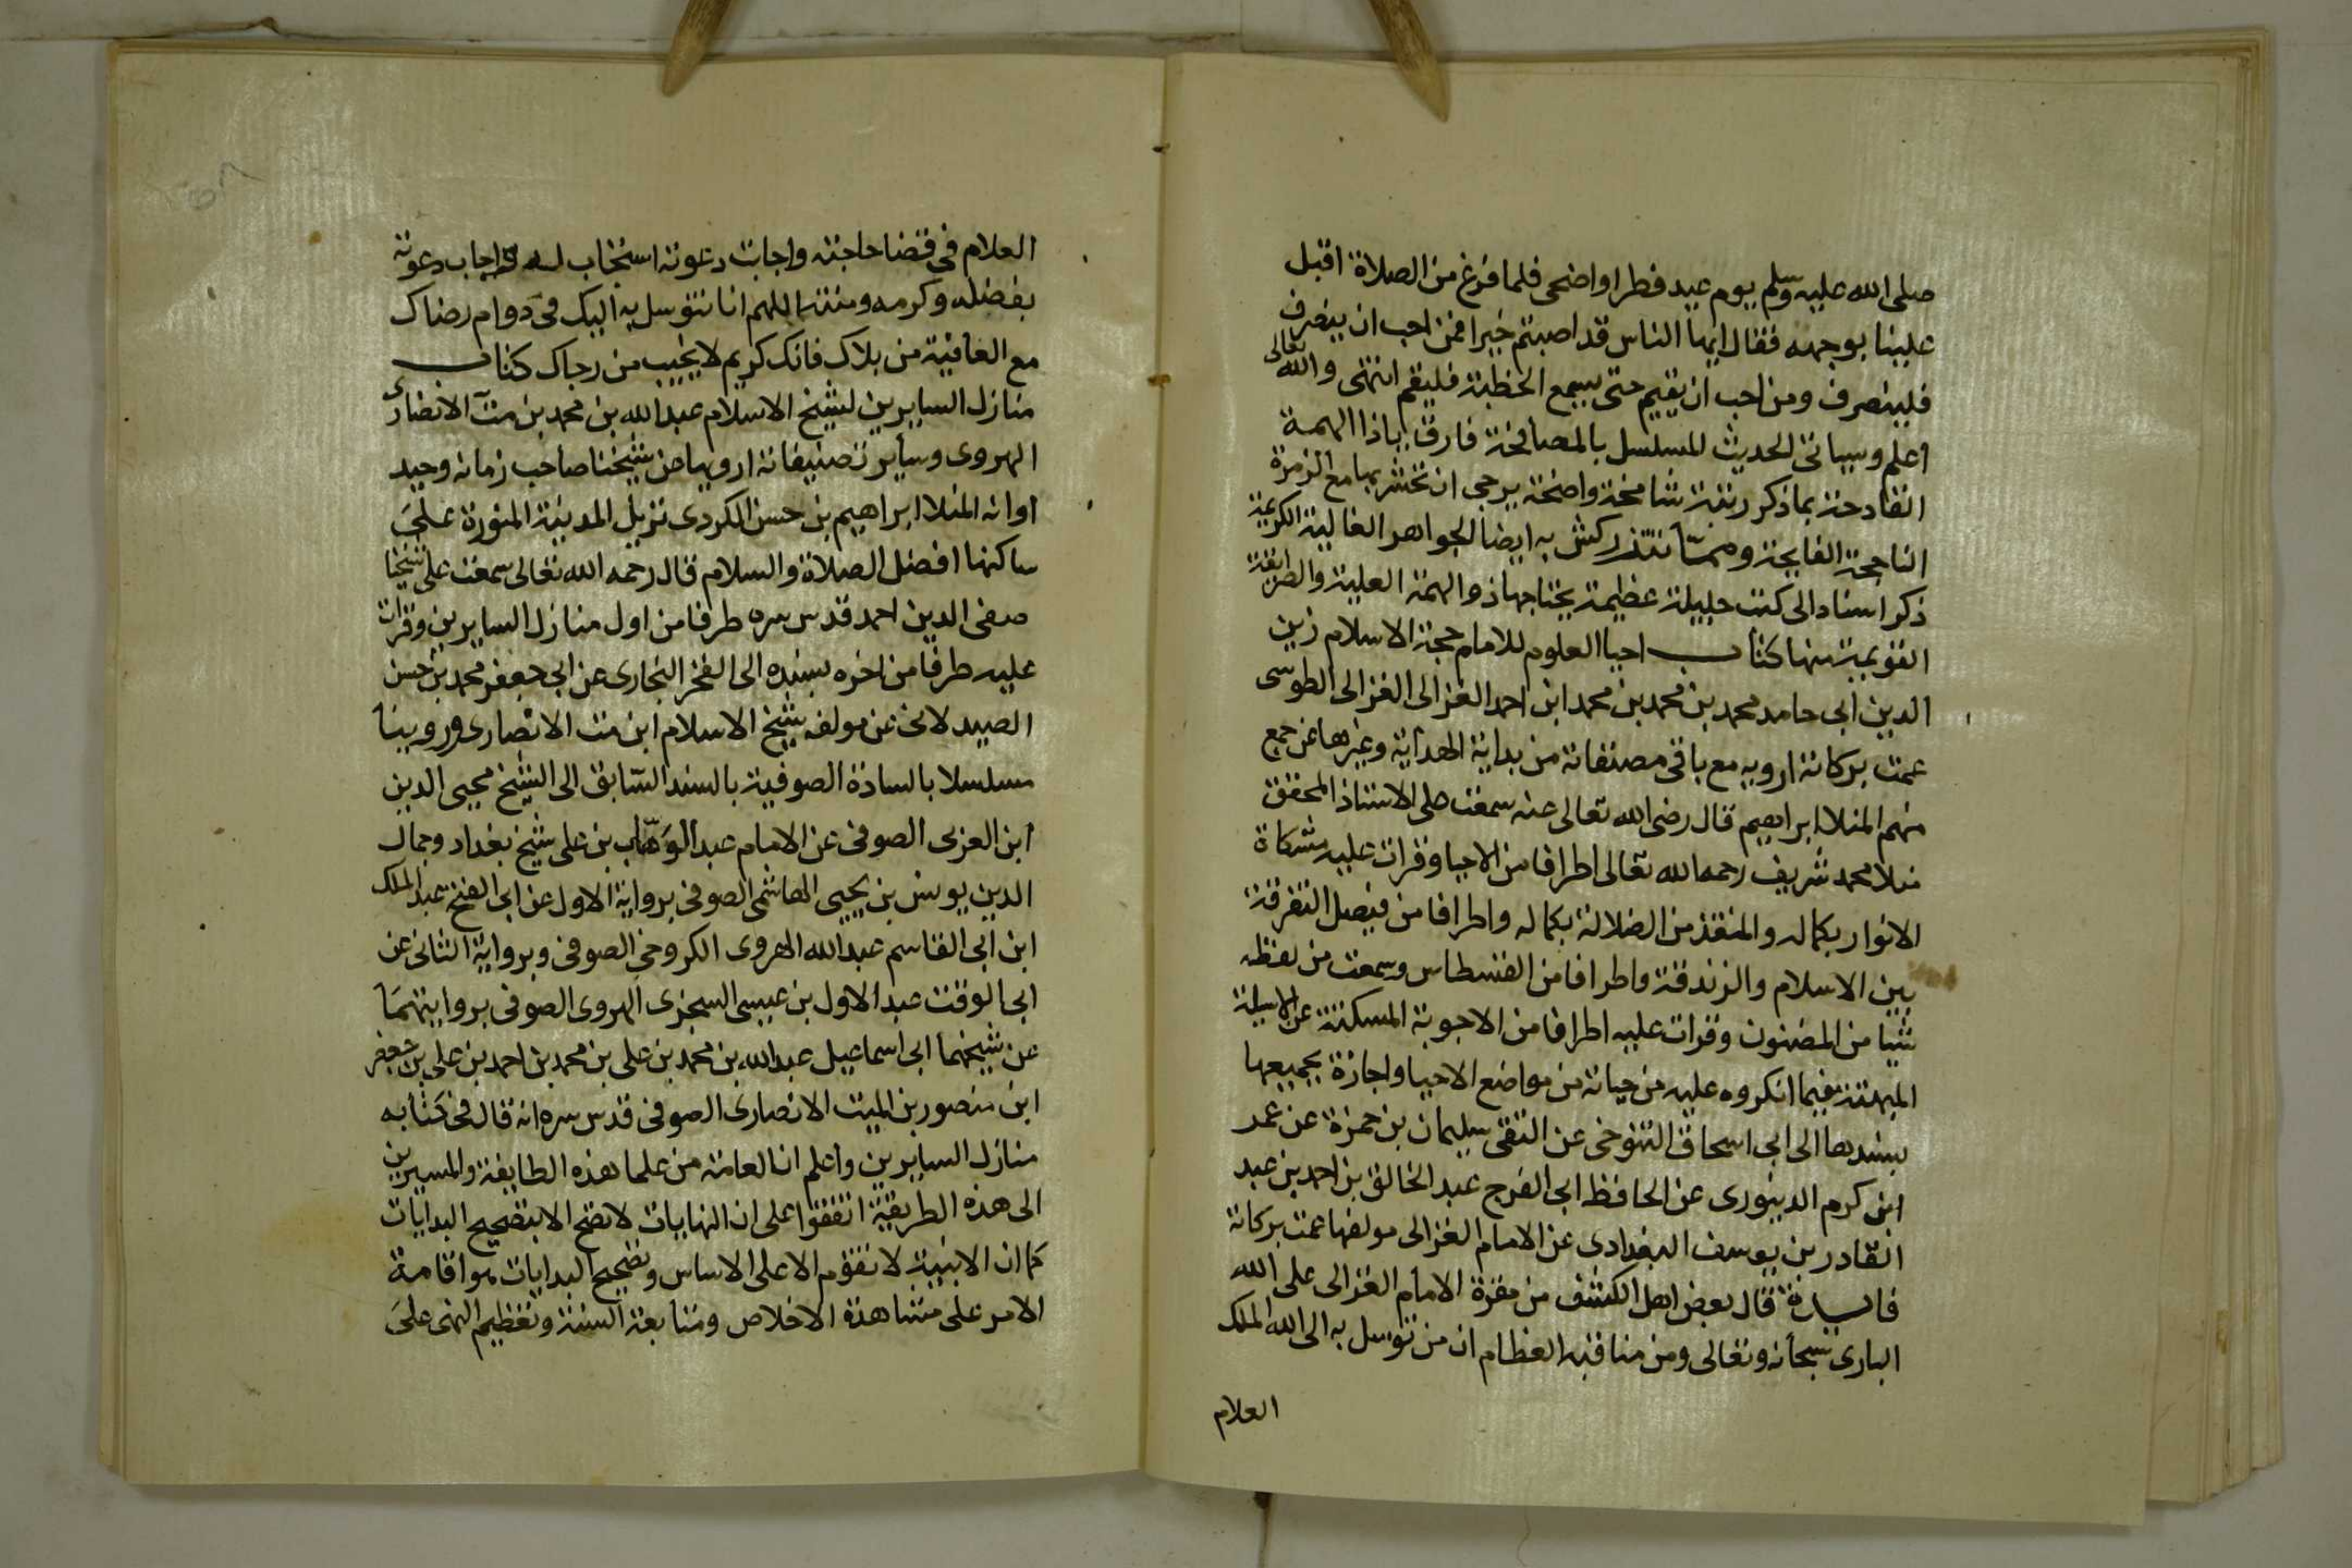 صلى الله عليه وسلم يوم عيد فطر او اضحى فلما فرغ من الصلاة اقبل
علينا بوجهه فقال ايها الناس قد اصبتم خيرا فمن احب ان ينصرف
فلينصرف ومن احب ان يقيم حتى يسمع الخطبة فليقم انتهى والله تعالى
اعلم وسياتى الحديث المسلسل بالمصافحة فارق ياذا الهمة
القادحة بما ذكر رتبة شامخة واضحة يرجى ان تحشر بها مع الزمرة
الناجحة الفايحة وممّا تتذركش به ايضا الجواهر الغالية الكريمة
ذكر اسناد الى كتب جليلة عظيمة يحتاجها ذو الهمة العلية والطريقة
القويمية منها كتاب احيا العلوم للامام حجة الاسلام زين
الدين ابى حامد محمد بن محمد بن محمد ابن احمد الغزالى الغزالى الطوسى
عمت بركاته ارويه مع باقى مصنفاته من بداية الهداية وغيرها عن جمع
منهم المنلا ابراهيم قال رضى الله تعالى عنه سمعت على الاستاذ المحقق
منلا محمد شريف رحمه الله تعالى اطرافا من الاحيا وقرات عليه مشكاة
الانوار بكماله والمنقذ من الضلالة بكماله واطرافا من فيصل التفرقة
بين الاسلام والزندقة واطرافا من القسطاس وسمعت من لفظه
شيا من المضنون وقرات عليه اطرافا من الاجوبة المسكتة عن الاسيلة
المبهتة فيما انكروه عليه من حياته من مواضع الاحيا واجازة بجميعها
بسندها الى ابى اسحاق التنوخى عن التقى سليمان بن حمزة عن عمر
ابن كرم الدينورى عن الحافظ ابى الفرج عبد الخالق بن احمد بن عبد
القادر بن يوسف البغدادى عن الامام الغزالى مولفها عمت بركاته
فايدة قال بعض اهل الكشف من مقزة الامام الغزالى على الله
البارى سبحانه وتعالى ومن مناقبه العظام ان من توسل به الى الله الملك
العلام
العلام فى قضا حاجته واجابت دعوته استجاب له واجاب دعوته
بفضله وكرمه ومنته اللهم انا نتوسل به اليك فى دوام رضاك
مع العافية من بلاك فانك كريم لا يخيب من رجاك كتاب
منازل السايرين لشيخ الاسلام عبد الله بن محمد بن متّ الانصارى
الهروى وساير تصنيفاته ارويها عن شيخنا صاحب زمانه وحيد
اوانه المنلا ابراهيم بن حسن الكردى نزيل المدينة المنورة على
ساكنها افضل الصلاة والسلام قال رحمه الله تعالى سمعت على شيخنا
صفى الدين احمد قدس سره طرفا من اول منازل السايرين وقرات
عليه طرفا من اخره بسنده الى الفخر البخارى عن ابى جعفر محمد بن حسن
الصيدلانى عن مولفه شيخ الاسلام ابن مت الانصارى وروينا
مسلسلا بالسادة الصوفية بالسند السّابق الى الشيخ محيى الدين
ابن العربى الصوفى عن الامام عبد الوَهّاب بن على شيخ بغداد وجمال
الدين يونس بن يحيى الهاشمى الصوفى برواية الاول عن ابى الفتح عبد الملك
ابن ابى القاسم عبد الله الهروى الكروخى الصوفى وبرواية الثانى عن
ابى الوقت عبد الاول بن عيسى السجزى الهروى الصوفى بروايتهما
عن شيخهما ابى اسماعيل عبد الله بن محمد بن على بن محمد بن احمد بن على بن جعفر
ابن منصور بن الميت الانصارى الصوفى قدس سره انه قال فى كتابه
منازل السايرين واعلم ان العامة من علما هذه الطايفة والمسيرين
الى هذه الطريقية اتفقوا على ان النهايات لا تصح الا بتصحيح البدايات
كما ان الابنية لا تقوم الا على الاساس وتصحيح البدايات هو اقامة
الامر على مشاهدة الاخلاص ومتابعة السنة وتعظيم النهى على